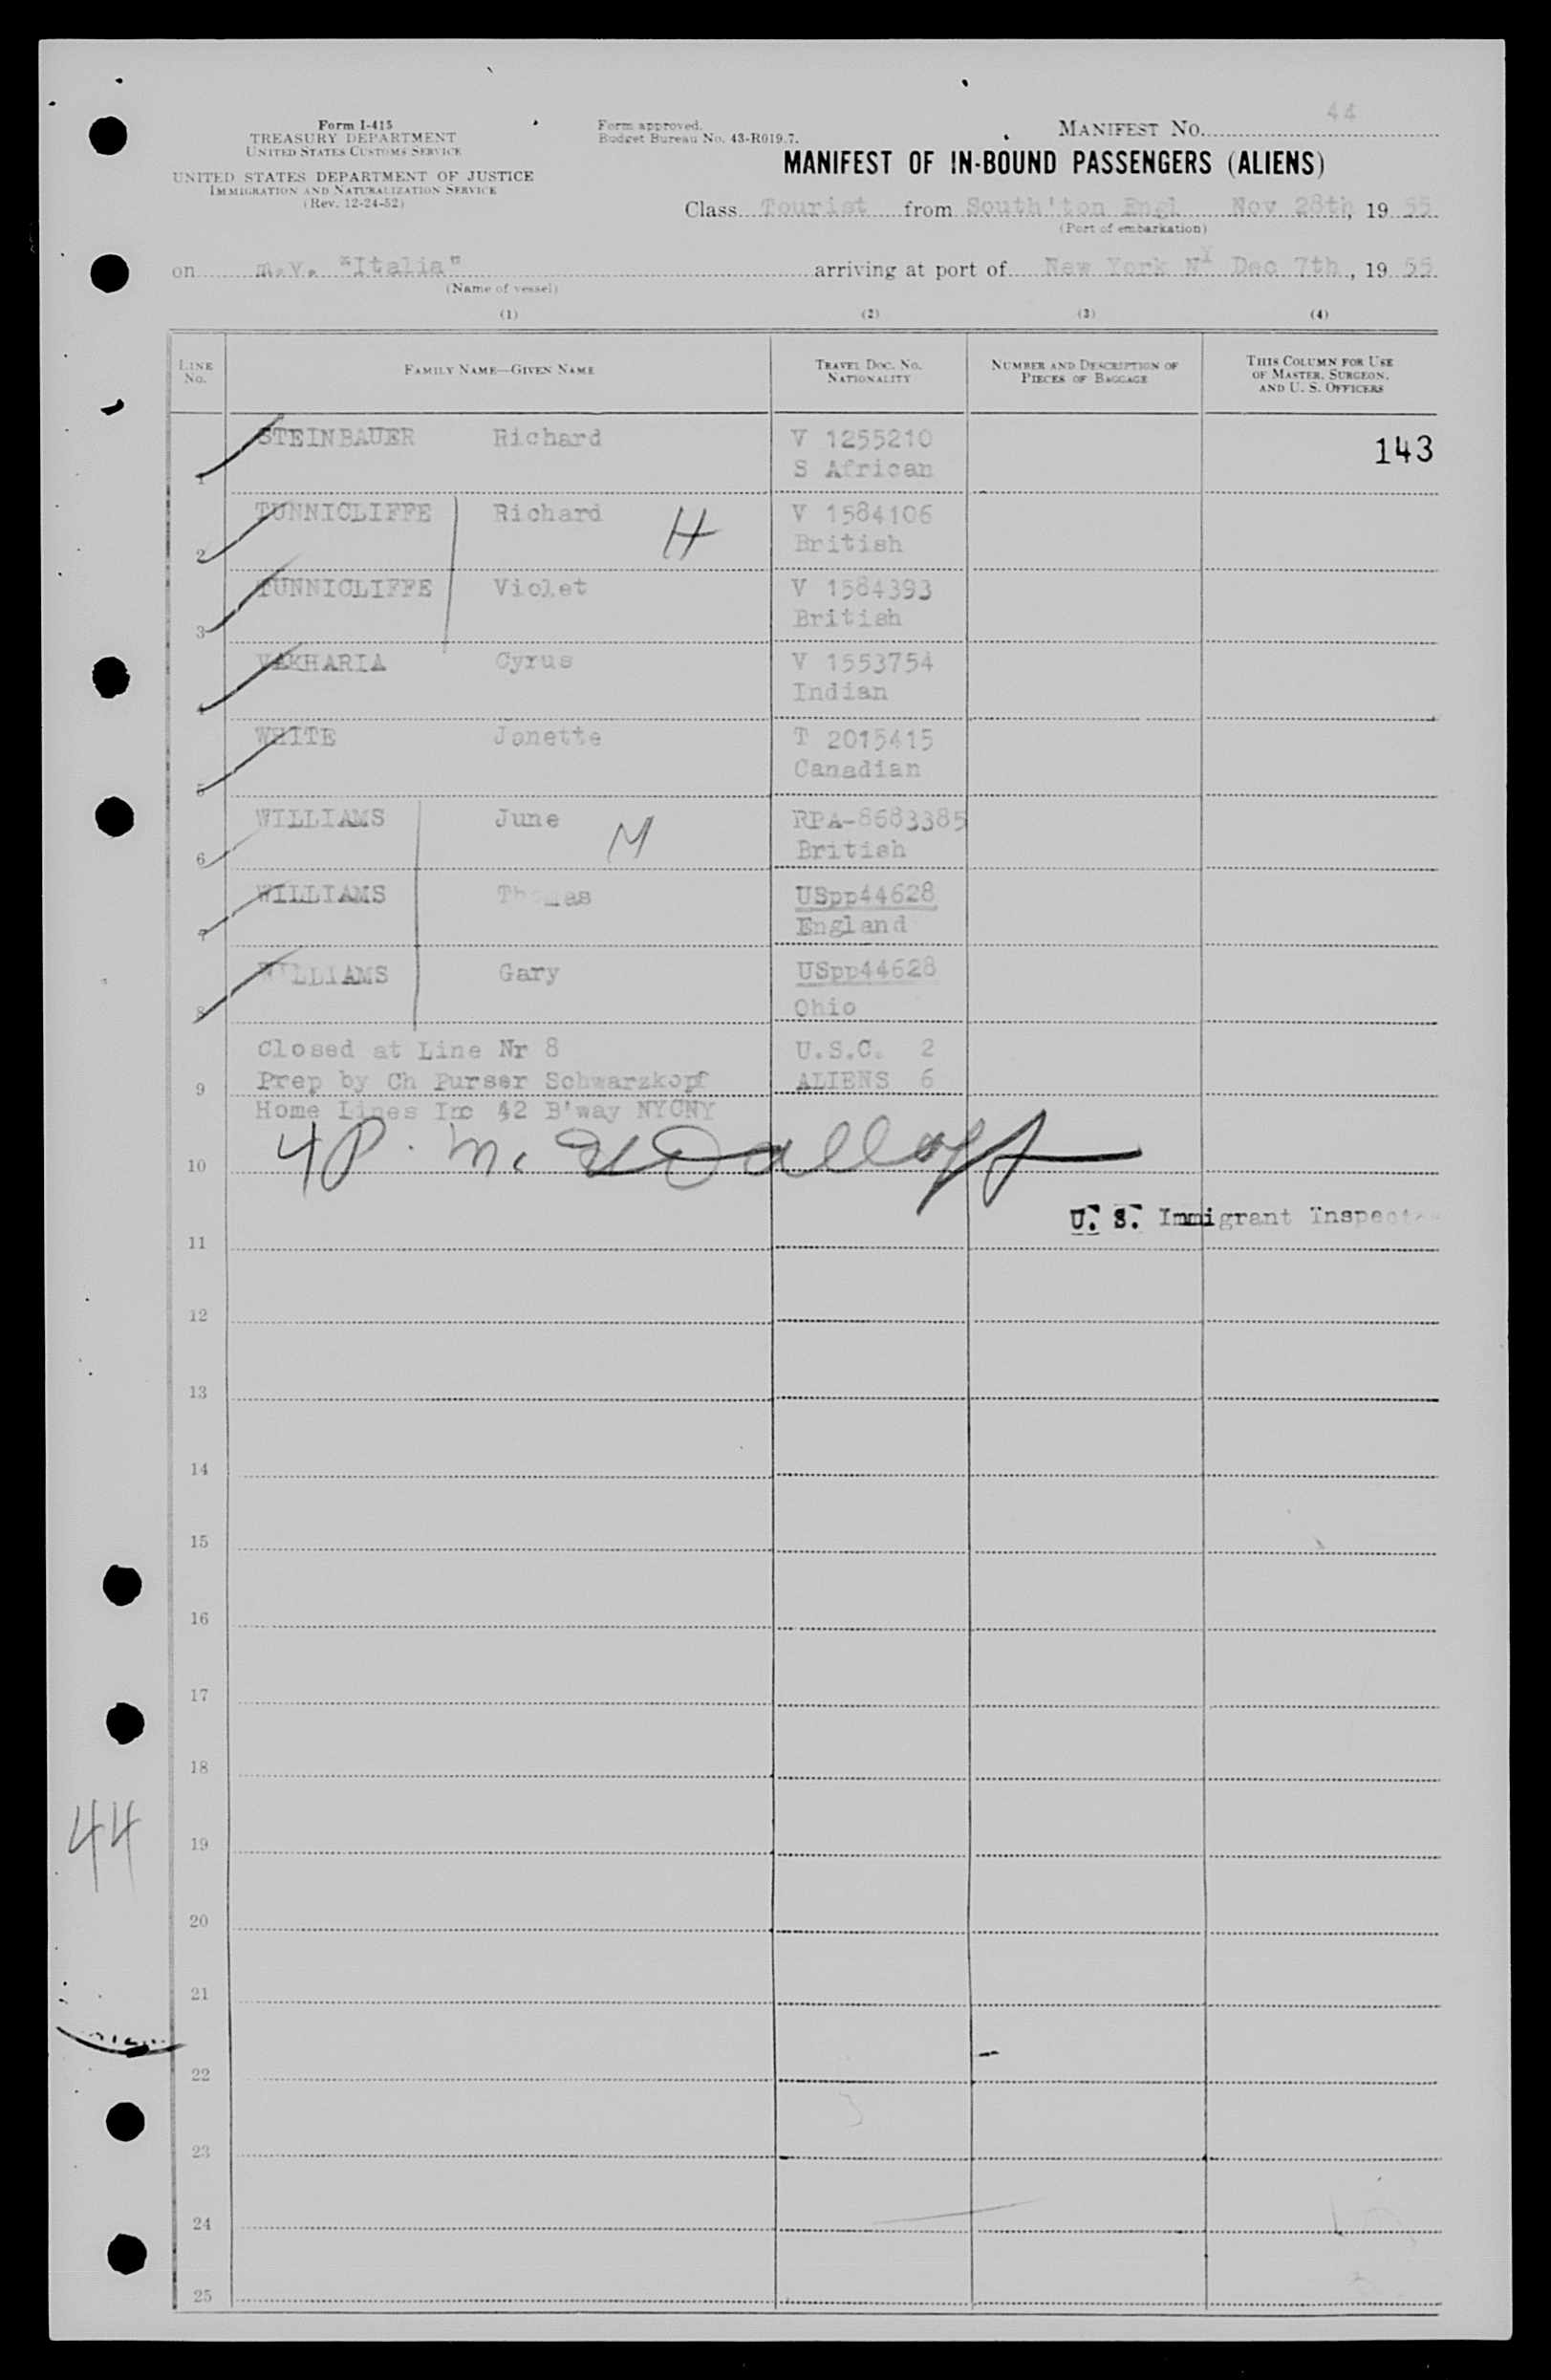 Form I-415
TREASURY DEPARTMENT
UNITED STATES CUSTOMS SERVICE
UNITED STATES DEPARTMENT OF JUSTICE
IMMIGRATION AND NATURALIZATION SERVICE
(Rev. 12-24-52)
Form approved.
Budget Bureau No. 43-R019.7.
MANIFEST NO. 44
MANIFEST OF IN-BOUND PASSENGERS (ALIENS)
Class Tourist from South'ton Engl Nov 28th, 19 55
(Port of embarkation)
on m.v. "Italia" arriving at port of New York NY Dec 7th, 19 55
(Name of vessel)
(1) (2) (3) (4)
LINE No. FAMILY NAME—GIVEN NAME TRAVEL DOC. NO. NATIONALITY NUMBER AND DESCRIPTION OF PIECES OF BAGGAGE THIS COLUMN FOR USE OF MASTER, SURGEON, AND U. S. OFFICERS
1 STEINBAUER Richard V 1255210 143
S African
2 TUNNICLIFFE Richard H V 1584106
British
3 TUNNICLIFFE Violet V 1584393
British
4 VAKHARIA Cyrus V 1553754
Indian
5 WHITE Janette T 2015415
Canadian
6 WILLIAMS June M RPA-8683385
British
7 WILLIAMS Thomas USpp44628
England
8 WILLIAMS Gary USpp44628
Ohio
Closed at Line Nr 8 U.S.C. 2
9 Prep by Ch Purser Schwarzkopf ALIENS 6
Home Lines Inc 42 B'way NYCNY
10
U. S. Immigrant Inspector
11
12
13
14
15
16
17
18
44
19
20
21
22
23
24
25